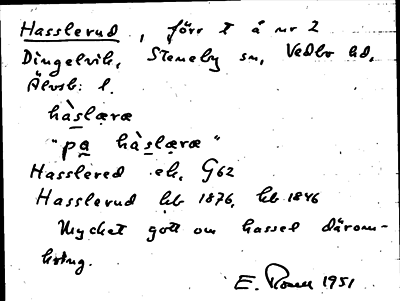 Hasslerud, förr t å nr 2
Dingelvik, Steneby sn, Vedbo hd,
Älvsb. l.
hàslæræ
"pa hàslæræ"
Hasslered ek. G62
Hasslerud hb 1876, hb 1846
Mycket gott om hassel därom-
kring.
E. Rosell 1951